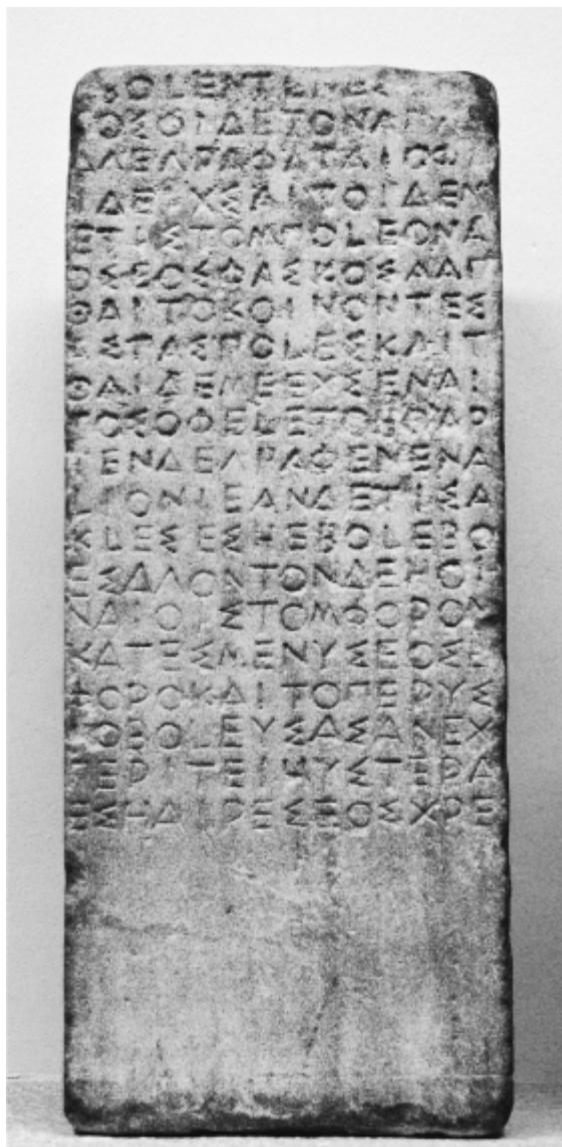 ΒΟΛΕΝΤΕΜΕ
ΟΣΟΙΔΕΤΟΝΑΠΑ
ΑΓΕΓΡΑΦΑΤΑΙΟΦ
ΙΔΕΙΧΣΑΙΤΟΙΔΕΜ
ΕΤΙΣΤΟΜΠΟΛΕΟΝΑ
ΟΣΕΟΣΦΑΣΚΟΣΑΑΠ
ΘΑΙΤΟΚΟΙΝΟΝΤΕΣ
ΣΤΑΣΠΟΛΕΣΚΑΙΤ
ΘΑΙΔΕΜΕΕΧΣΕΝΑΙ
ΤΟΣΟΦΕΛΕΤΟΗΟΓΡ
ΤΕΝΔΕΓΡΑΦΕΝΕΝΑ
ΛΙΟΝΙΕΑΝΔΕΤΙΣΑ
ΚΛΕΣΕΣΗΕΒΟΛΕΒΟ
ΕΣΑΓΟΝΤΟΝΔΕΗΟΙ
ΝΑΙΟΙΣΤΟΜΦΟΡΟΝ
ΚΑΤΕΣΜΕΝΥΣΕΟΣΕ
ΦΟΡΟΚΑΙΤΟΠΕΡΥΣ
ΡΟΒΟΛΕΥΣΑΣΑΕΧ
ΠΕΡΙΤΕΙΗΥΣΤΕΡΑ
ΕΣΗΑΙΡΕΣΕΟΣΧΡΕ